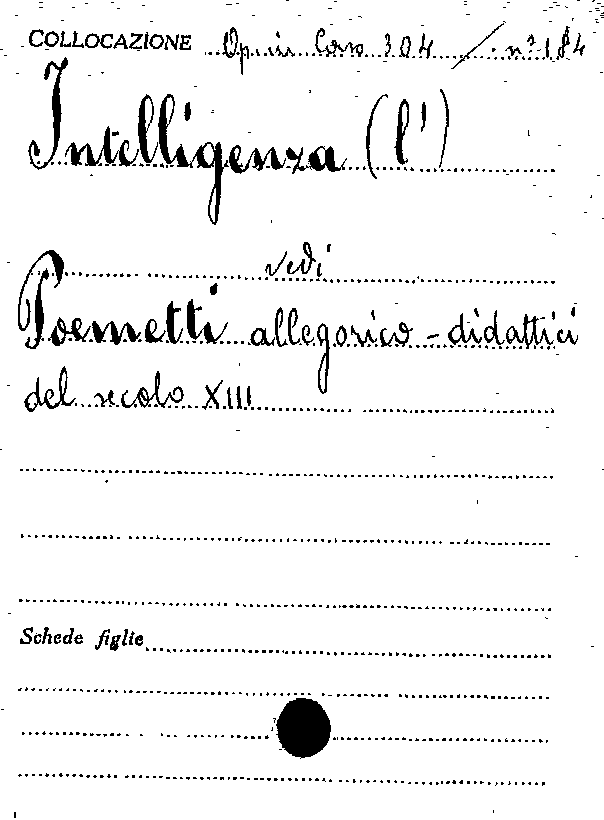 COLLOCAZIONE Op. in Corso 304 / n° 184
Intelligenza (l')
vedi
Poemetti allegorico-didattici
del secolo XIII
Schede figlie